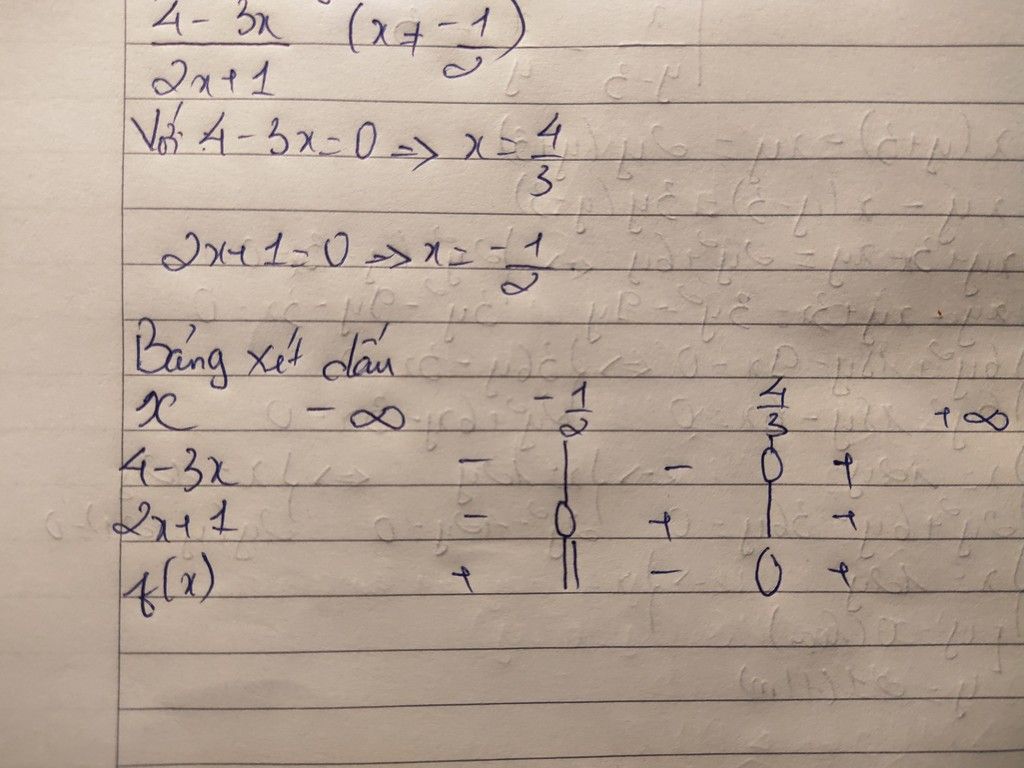 4 - 3x / 2x + 1 (x ≠ -1/2)
Với 4 - 3x = 0 => x = 4/3
2x + 1 = 0 => x = -1/2
Bảng xét dấu
x -∞ -1/2 4/3 +∞
4 - 3x - | - 0 +
2x + 1 - 0 + | +
f(x) + || - 0 +